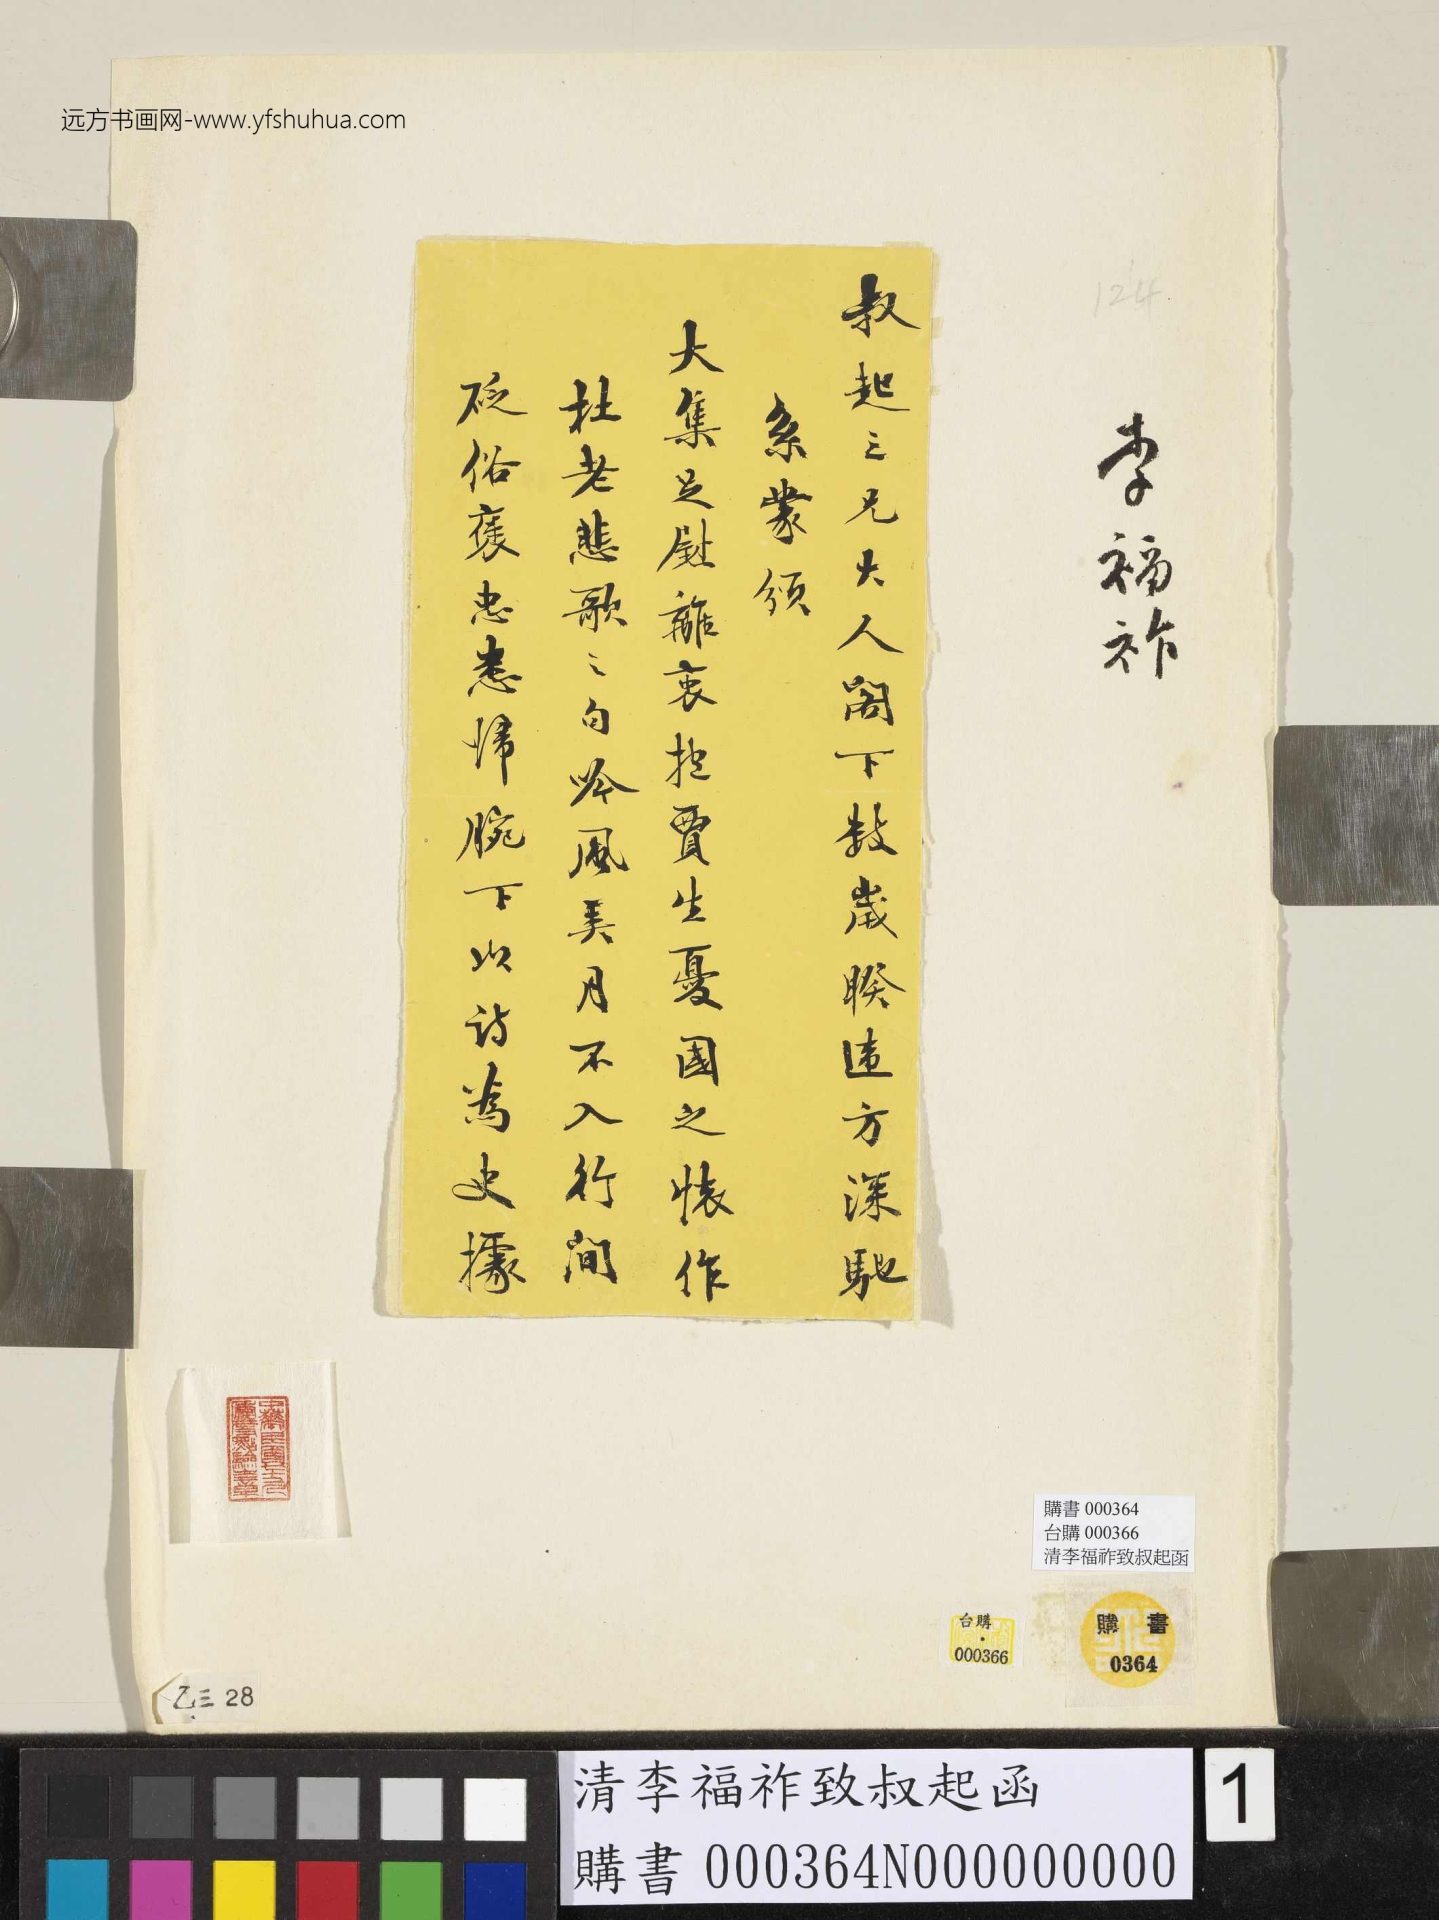 远方书画网-www.yfshuhua.com
124
李福祚
叔起三兄大人閣下數歲睽違方深馳
系蒙頒
大集足慰離衷抱賈生憂國之懷作
杜老悲歌之句吟風美月不入行間
砭俗褒忠悉歸腕下以詩為史據
購書 000364
台購 000366
清李福祚致叔起函
台購
000366
購書
0364
乙三 28
清李福祚致叔起函
購書 000364N000000000
1